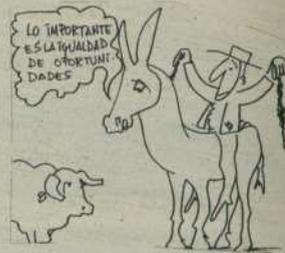 LO IMPORTANTE
ES LA IGUALDAD
DE OPORTUNI-
DADES